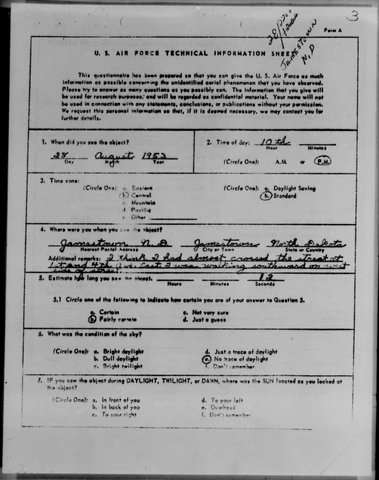 3
28/2200
Form A
JAMESTOWN
N.D
U. S. AIR FORCE TECHNICAL INFORMATION SHEET
This questionnaire has been prepared so that you can give the U. S. Air Force as much
information as possible concerning the unidentified aerial phenomenon that you have observed.
Please try to answer as many questions as you possibly can. The information that you give will
be used for research purposes, and will be regarded as confidential material. Your name will not
be used in connection with any statements, conclusions, or publications without your permission.
We request this personal information so that, if it is deemed necessary, we may contact you for
further details.
1. When did you see the object?
28 August 1953
Day Month Year
2. Time of day: 10th
Hour Minutes
(Circle One): A.M. or P.M.
3. Time zone:
(Circle One): a. Eastern
b. Central
c. Mountain
d. Pacific
e. Other
(Circle One): a. Daylight Saving
b. Standard
4. Where were you when you saw the object?
Jamestown N. D. Jamestown North Dakota
Nearest Postal Address City or Town State or Country
Additional remarks: I think I had almost crossed the street at
1st and 4th Ave East I was walking southward on west
side of street.
5. Estimate how long you saw the object. 12
Hours Minutes Seconds
5.1 Circle one of the following to indicate how certain you are of your answer to Question 5.
a. Certain c. Not very sure
b. Fairly certain d. Just a guess
6. What was the condition of the sky?
(Circle One): a. Bright daylight d. Just a trace of daylight
b. Dull daylight e. No trace of daylight
c. Bright twilight f. Don't remember
7. IF you saw the object during DAYLIGHT, TWILIGHT, or DAWN, where was the SUN located as you looked at
the object?
(Circle One): a. In front of you d. To your left
b. In back of you e. Overhead
c. To your right f. Don't remember